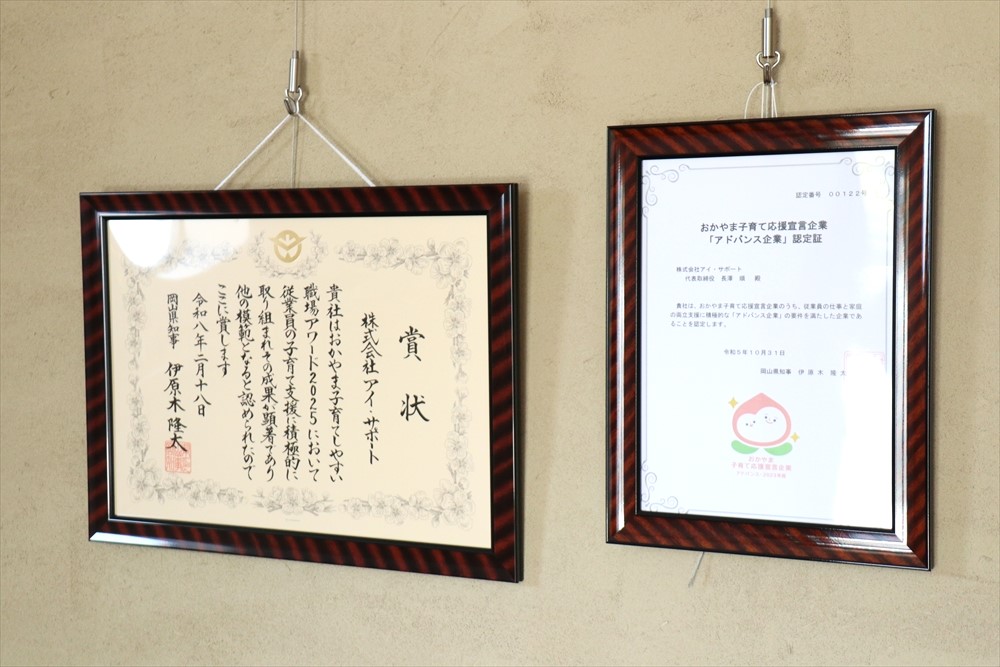 賞状
株式会社 アイ・サポート
貴社はおかやま子育てしやすい
職場アワード2025において
従業員の子育て支援に積極的に
取り組まれその成果が顕著であり
他の模範となると認められたので
ここに賞します
令和八年二月十八日
岡山県知事 伊原木隆太
認定番号 00122号
おかやま子育て応援宣言企業
「アドバンス企業」認定証
株式会社アイ・サポート
代表取締役 長澤 殿
貴社は、おかやま子育て応援宣言企業のうち、従業員の仕事と家庭
の両立支援に積極的な「アドバンス企業」の要件を満たした企業であ
ることを認定します。
令和5年10月31日
岡山県知事 伊原木 隆太
おかやま
子育て応援宣言企業